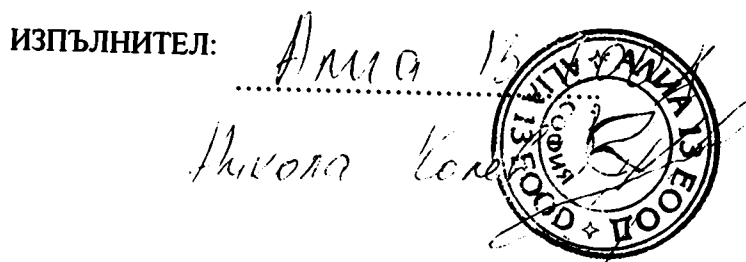 ИЗПЪЛНИТЕЛ:
Алиа 13
Никола
АЛИА 13 ЕООД
ALIA 13 EOOD
СОФИЯ